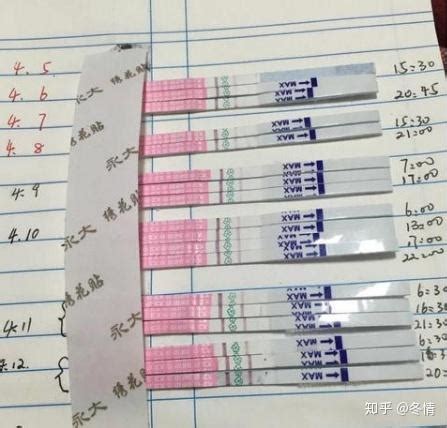 4. 5
15:30
4. 6
20:45
4. 7
15:30
4. 8
21:00
4.9
7:00
17:00
4.10
6:00
13:00
17:00
22:00
4.11
6:30
16:30
21:30
4.12.
6:30
20:
永大 绣花贴
永大
绣花贴
永大
绣花贴
永大
绣花贴
永大
MAX
MAX
MAX
MAX
MAX
MAX
MAX
MAX
MAX
MAX
MAX
MAX
MAX
MAX
知乎 @冬情